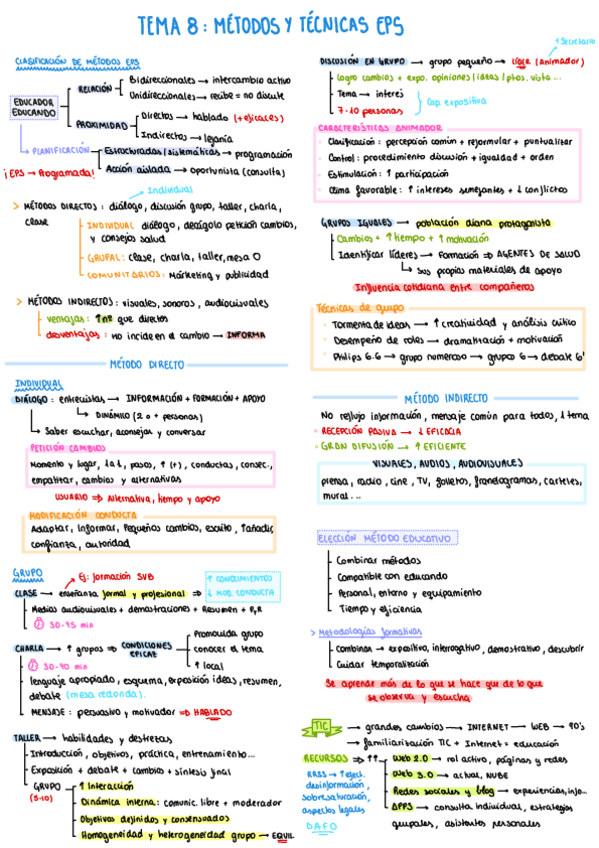 TEMA 8: MÉTODOS Y TÉCNICAS EPS
CLASIFICACIÓN DE MÉTODOS EPS
EDUCADOR
EDUCANDO
RELACIÓN
Bidireccionales → intercambio activo
Unidireccionales → recibe = no discute
PROXIMIDAD
Directos → hablado (+eficaces)
Indirectos → lejanía
PLANIFICACIÓN
Estructuradas/sistemáticas → programación
Acción aislada → oportunista (consulta)
¡EPS → Programada!
Individual
> MÉTODOS DIRECTOS: diálogo, discusión grupo, taller, charla,
clase
INDIVIDUAL diálogo, decálogo petición cambios,
y consejos salud
GRUPAL: clase, charla, taller, mesa O
COMUNITARIOS: Márketing y publicidad
> MÉTODOS INDIRECTOS: visuales, sonoros, audiovisuales
ventajas: ↑nº que directos
desventajas: no incide en el cambio → INFORMA
MÉTODO DIRECTO
INDIVIDUAL
DIÁLOGO: entrevistas → INFORMACIÓN + FORMACIÓN + APOYO
↳ DINÁMICO (2 o + personas)
↳ Saber escuchar, aconsejar y conversar
PETICIÓN CAMBIOS
Momento y lugar, 1a1, pasos, ↑(+), conductas, consec.,
empatizar, cambios y alternativas
USUARIO ⇒ Alternativa, tiempo y apoyo
MODIFICACIÓN CONDUCTA
Adaptar, informar, Pequeños cambios, escrito, ↑añadir,
confianza, autoridad
GRUPO
Ej: formación SVB
CLASE → enseñanza formal y profesional ⇒
↑ CONOCIMIENTOS
↓ MOD. CONDUCTA
Medios audiovisuales + demostraciones + Resumen + P,R
30-45 min
CHARLA → ↑ grupos ⇒ CONDICIONES
EFICAZ
Promovida grupo
conocer el tema
↑ local
30-40 min
lenguaje apropiado, esquema, exposición ideas, resumen,
debate (mesa redonda).
MENSAJE: persuasivo y motivador ⇒ HABLADO
TALLER → habilidades y destrezas
Introducción, objetivos, práctica, entrenamiento...
Exposición + debate + cambio + síntesis final
GRUPO
(5-10)
↑ Interacción
Dinámica interna: comunic. libre + moderador
Objetivos definidos y consensuados
Homogeneidad y heterogeneidad grupo → EQUIL
DISCUSIÓN EN GRUPO → grupo pequeño → LÍDER (animador)
↑ Secretario
logro cambios + expo. opiniones/ideas/ptos. vista...
Tema → interés
7-10 personas
Cap. expositiva
CARACTERÍSTICAS ANIMADOR
Clasificación: percepción común + reformular + puntualizar
Control: procedimiento discusión + igualdad + orden
Estimulación: ↑ participación
Clima favorable: ↑ intereses semejantes + ↓ conflictos
GRUPOS IGUALES → población diana protagonista
Cambios + ↑tiempo + ↑motivación
Identificar líderes → Formación ⇒ AGENTES DE SALUD
↳ sus propias materiales de apoyo
Influencia cotidiana entre compañeros
Técnicas de grupo
Tormenta de ideas → ↑ creatividad y análisis crítico
Desempeño de roles → dramatización + motivación
Philips 6.6 → grupo numeroso → grupos 6 → debate 6'
MÉTODO INDIRECTO
No reflujo información, mensaje común para todos, 1 tema
RECEPCIÓN PASIVA → ↓ EFICACIA
GRAN DIFUSIÓN → ↑ EFICIENTE
VISUALES, AUDIOS, AUDIOVISUALES
prensa, radio, cine, TV, folletos, franelogramas, carteles,
mural...
ELECCIÓN MÉTODO EDUCATIVO
Combinar métodos
Compatible con educando
Personal, entorno y equipamiento
Tiempo y eficiencia
> Metodologías formativas
Combinar → expositivo, interrogativo, demostrativo, descubrir
Cuidar temporalización
Se aprende más de lo que se hace que de lo que
se observa y escucha
TIC → grandes cambios → INTERNET → WEB → 90's
→ familiarización TIC + Internet = educación
RECURSOS ⇒ ↑↑
Web 2.0 → rol activo, páginas y redes
Web 3.0 → actual, NUBE
Redes sociales y blog → experiencias, info...
APPS → consulta individual, estrategias
grupales, asistentes personales
RRSS → ↑efect.
desinformación,
sobresaturación,
aspectos legales
DAFO